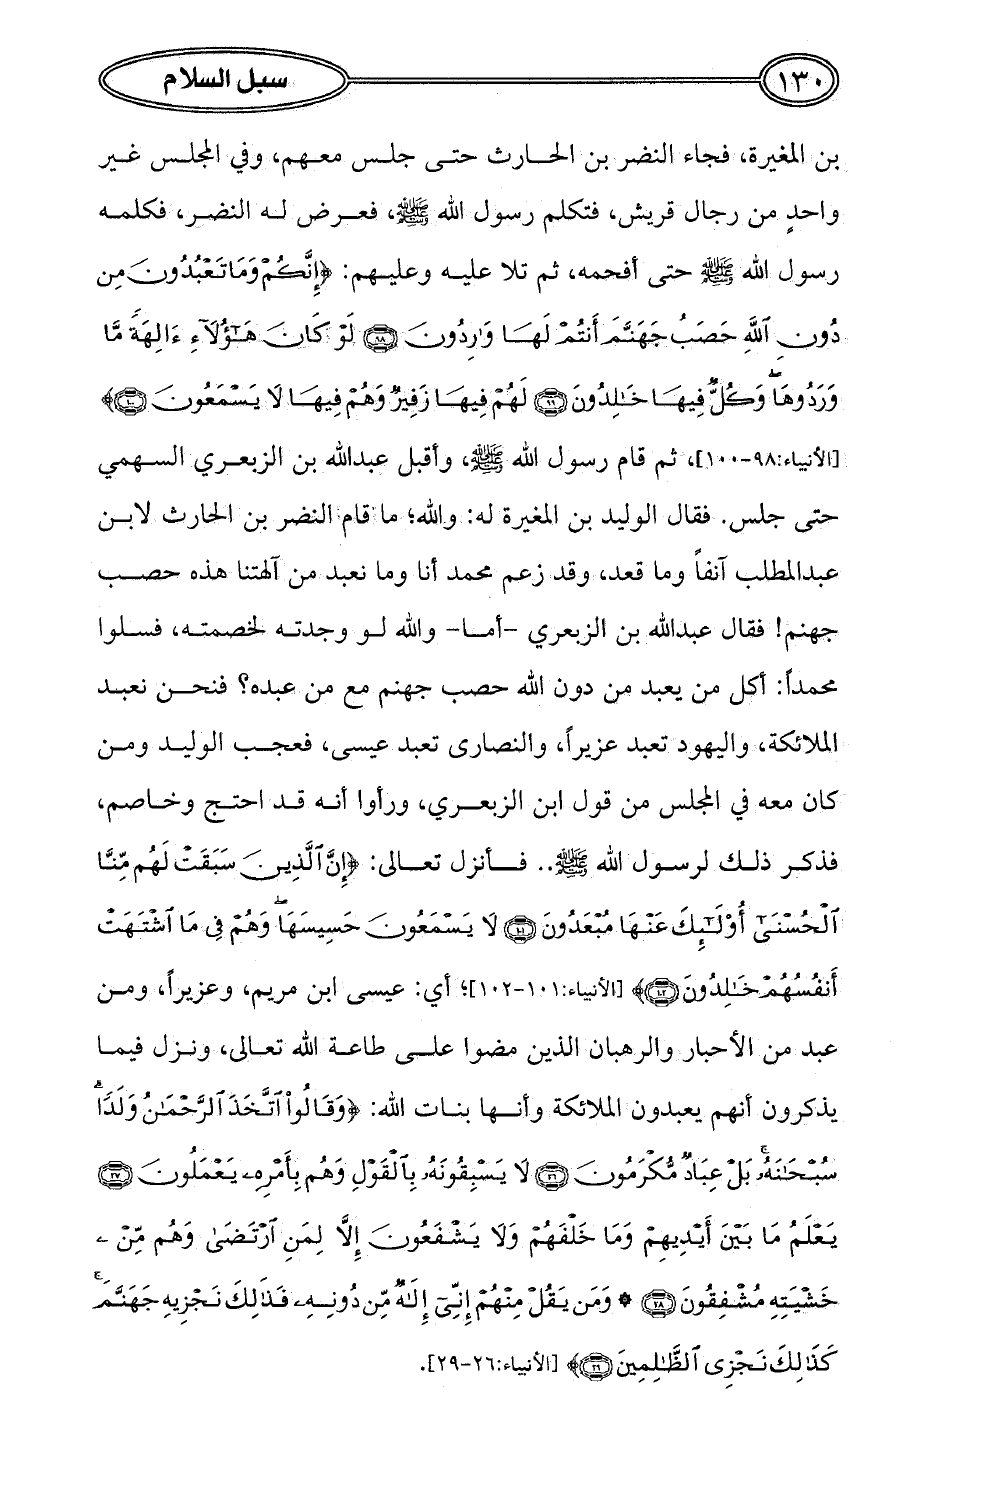 ١٣٠ سبل السلام
بن المغيرة، فجاء النضر بن الحارث حتى جلس معهم، وفي المجلس غير
واحدٍ من رجال قريش، فتكلم رسول الله ﷺ، فعرض له النضر، فكلمه
رسول الله ﷺ حتى أفحمه، ثم تلا عليه وعليهم: ﴿إِنَّكُمْ وَمَا تَعْبُدُونَ مِن
دُونِ ٱللَّهِ حَصَبُ جَهَنَّمَ أَنتُمْ لَهَا وَٰرِدُونَ ٩٨ لَوْ كَانَ هَـٰٓؤُلَآءِ ءَالِهَةً مَّا
وَرَدُوهَا ۖ وَكُلٌّ فِيهَا خَـٰلِدُونَ ٩٩ لَهُمْ فِيهَا زَفِيرٌ وَهُمْ فِيهَا لَا يَسْمَعُونَ ١٠٠﴾
[الأنبياء:٩٨-١٠٠]، ثم قام رسول الله ﷺ، وأقبل عبدالله بن الزبعري السهمي
حتى جلس. فقال الوليد بن المغيرة له: والله؛ ما قام النضر بن الحارث لابن
عبدالمطلب آنفاً وما قعد، وقد زعم محمد أنا وما نعبد من آلهتنا هذه حصب
جهنم! فقال عبدالله بن الزبعري -أما- والله لو وجدته لخصمته، فسلوا
محمداً: أكل من يعبد من دون الله حصب جهنم مع من عبده؟ فنحن نعبد
الملائكة، واليهود تعبد عزيراً، والنصارى تعبد عيسى، فعجب الوليد ومن
كان معه في المجلس من قول ابن الزبعري، ورأوا أنه قد احتج وخاصم،
فذكر ذلك لرسول الله ﷺ.. فأنزل تعالى: ﴿إِنَّ ٱلَّذِينَ سَبَقَتْ لَهُم مِّنَّا
ٱلْحُسْنَىٰٓ أُو۟لَـٰٓئِكَ عَنْهَا مُبْعَدُونَ ١٠١ لَا يَسْمَعُونَ حَسِيسَهَا ۖ وَهُمْ فِى مَا ٱشْتَهَتْ
أَنفُسُهُمْ خَـٰلِدُونَ ١٠٢﴾ [الأنبياء:١٠١-١٠٢]؛ أي: عيسى ابن مريم، وعزيراً، ومن
عبد من الأحبار والرهبان الذين مضوا على طاعة الله تعالى، ونزل فيما
يذكرون أنهم يعبدون الملائكة وأنها بنات الله: ﴿وَقَالُوا۟ ٱتَّخَذَ ٱلرَّحْمَـٰنُ وَلَدًا ۗ
سُبْحَـٰنَهُۥ ۚ بَلْ عِبَادٌ مُّكْرَمُونَ ٢٦ لَا يَسْبِقُونَهُۥ بِٱلْقَوْلِ وَهُم بِأَمْرِهِۦ يَعْمَلُونَ ٢٧
يَعْلَمُ مَا بَيْنَ أَيْدِيهِمْ وَمَا خَلْفَهُمْ وَلَا يَشْفَعُونَ إِلَّا لِمَنِ ٱرْتَضَىٰ وَهُم مِّنْ
خَشْيَتِهِۦ مُشْفِقُونَ ٢٨ * وَمَن يَقُلْ مِنْهُمْ إِنِّىٓ إِلَـٰهٌ مِّن دُونِهِۦ فَذَٰلِكَ نَجْزِيهِ جَهَنَّمَ ۚ
كَذَٰلِكَ نَجْزِى ٱلظَّـٰلِمِينَ ٢٩﴾ [الأنبياء:٢٦-٢٩].